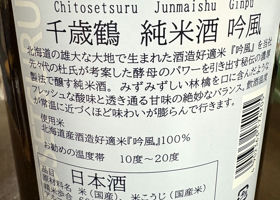 Chitosetsuru Junmaishu Ginpu
千歳鶴 純米酒 吟風
北海道の雄大な大地で生まれた酒造好適米『吟風』を当社
先々代の杜氏が考案した酵母のパワーを引き出す秘伝の濃
製法で醸す純米酒。みずみずしい林檎を口に含んだような
フレッシュな酸味と透き通る甘味の絶妙なバランス。飲酒温
が常温に近づくほど味わいが膨らんで行きます。
使用米
北海道産酒造好適米『吟風』100%
お勧めの温度帯 10度~20度
日本酒
原材料名 米(国産)、米こうじ(国産米)